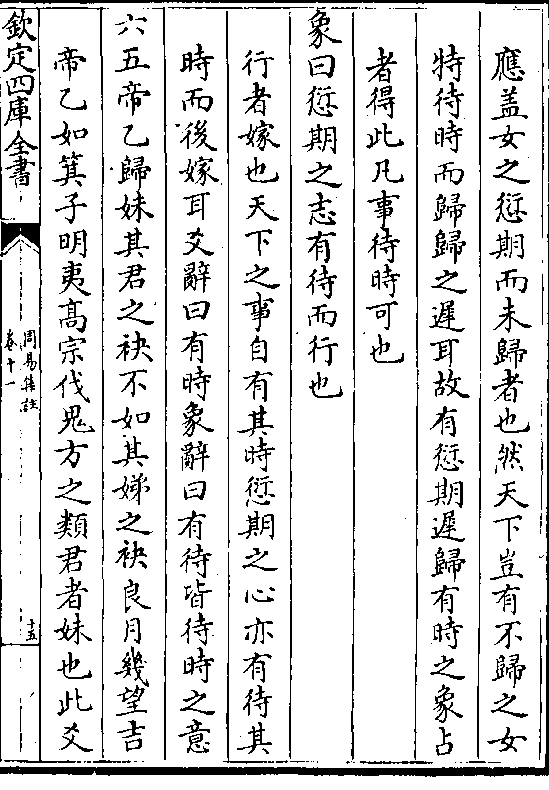 應蓋女之愆期而未歸者也然天下豈有不歸之女
特待時而歸歸之遲耳故有愆期遲歸有時之象占
者得此凡事待時可也
象曰愆期之志有待而行也
行者嫁也天下之事自有其時愆期之心亦有待其
時而後嫁耳爻辭曰有時象辭曰有待皆待時之意
六五帝乙歸妹其君之袂不如其娣之袂良月幾望吉
帝乙如箕子明夷高宗伐鬼方之類君者妹也此爻
欽定四庫全書
周易集註
卷十一
十五